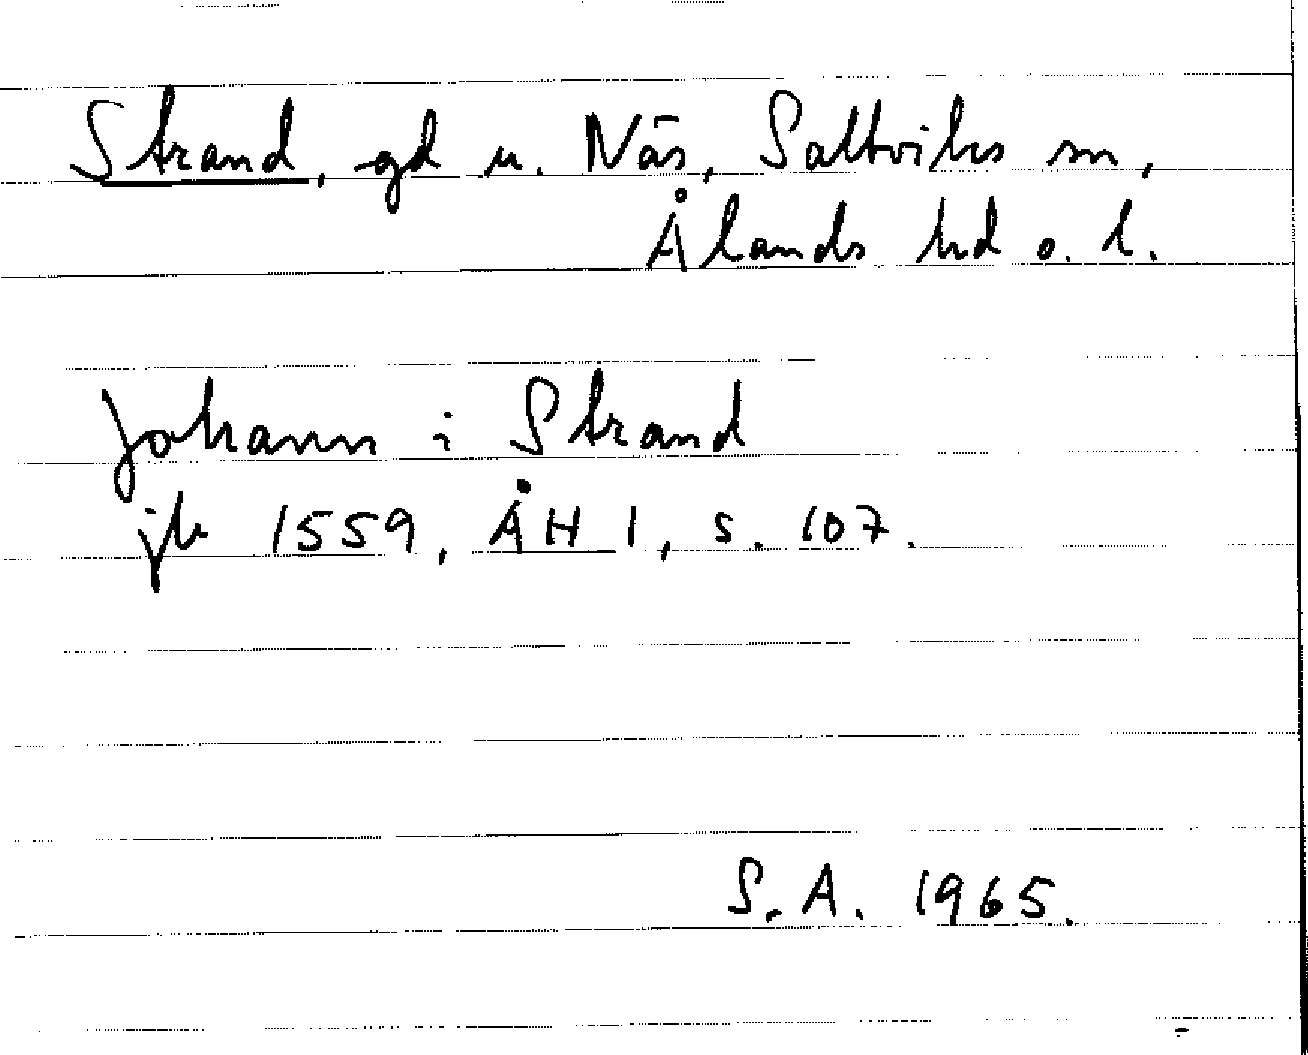 Strand, gd u. Näs, Saltviks sn,
Ålands hd o. l.
Johann i Strand
jb 1559, ÅH 1, s. 107.
S. A. 1965.